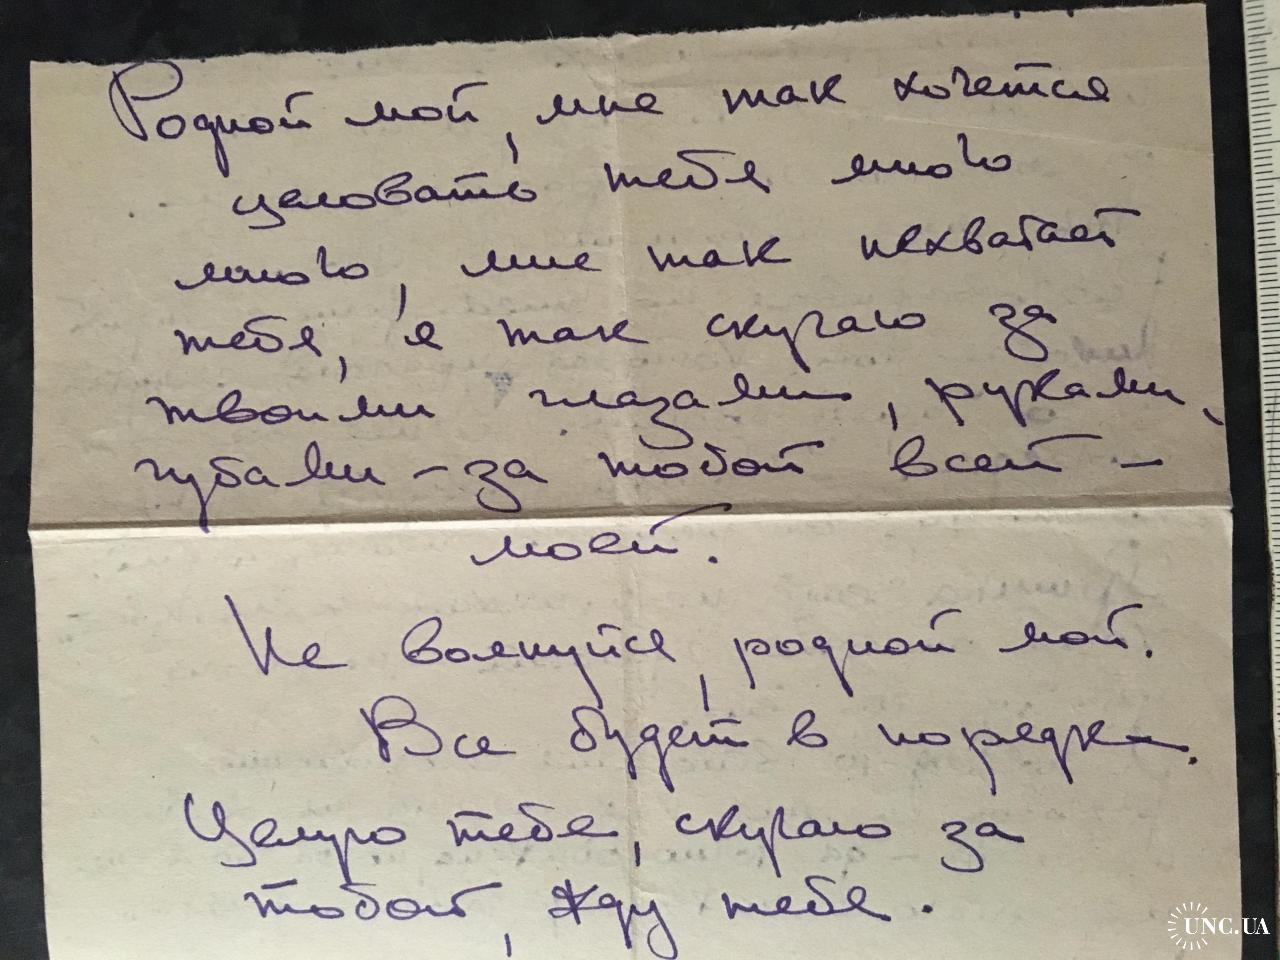 Родной мой, мне так хочется
целовать тебя много
много, мне так нехватает
тебя, я так скучаю за
твоими глазами, руками,
губами – за тобой всей –
моей.
Не волнуйся, родной мой.
Все будет в порядке.
Целую тебя, скучаю за
тобой, жду тебя.
UNC.UA